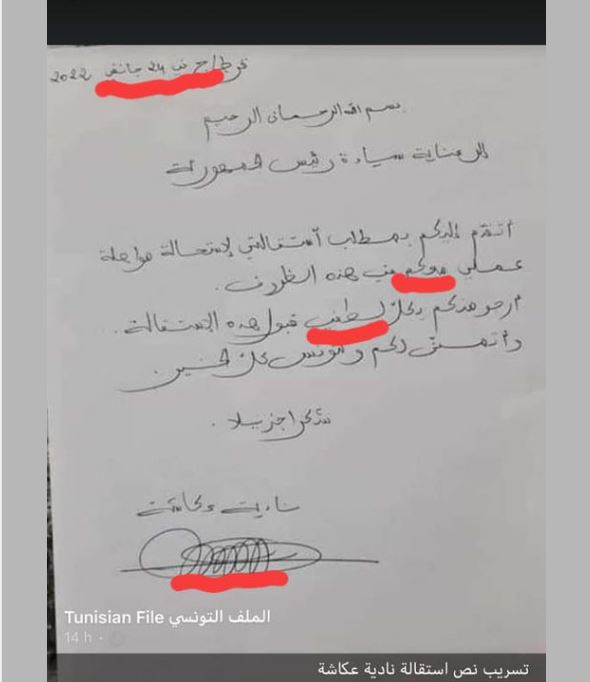 قرطاج في 24 جانفي 2022
بسم الله الرحمان الرحيم
إلى عناية سيادة رئيس الجمهورية
أتقدم إليكم بمطلب استقالتي لإستحالة مواصلة
عملي معكم في هذه الظروف.
أرجو منكم بكل لطف قبول هذه الاستقالة.
وأتمنى لكم ولتونس كل الخير
شكرا جزيلا.
نادية عكاشة
Tunisian File الملف التونسي
14 h ·
تسريب نص استقالة نادية عكاشة